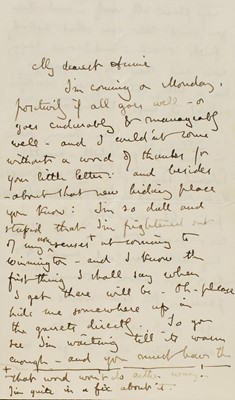 My dearest Annie
I'm coming on Monday,
positively if all goes well - or
goes endurably & manageably
well - and I could'nt come
without a word of thanks for
your little letter: and besides
- about that new hiding place
you know: I'm so dull and
stupid that I'm frightened out
of my own senses at coming to
Winnington - and I know the
first thing I shall say when
I get there will be - Oh - please
hide me somewhere up in
the garrets directly... So you
see I'm waiting till its warm
enough - and you must have the
that word won't do either way -
I'm quite in a fix about it.